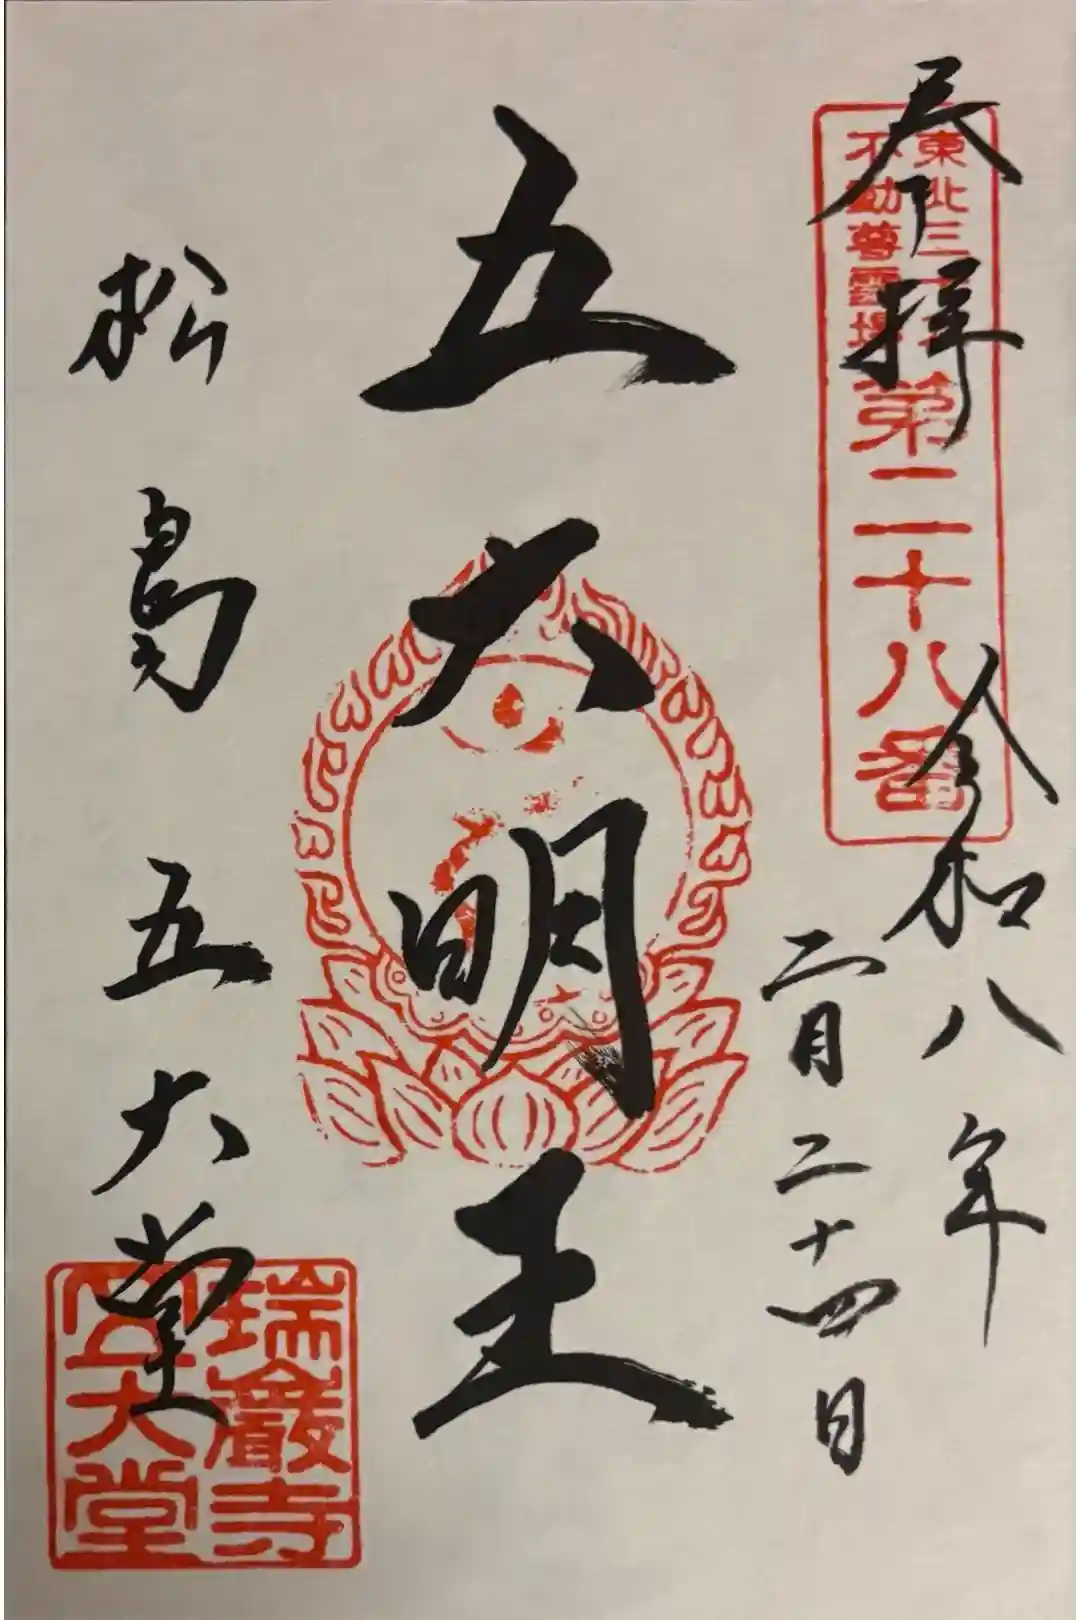 奉拝
東北三十六
不動尊霊場
第二十八番
令和八年
二月二十四日
五大明王
松島五大堂
瑞巖寺
五大堂